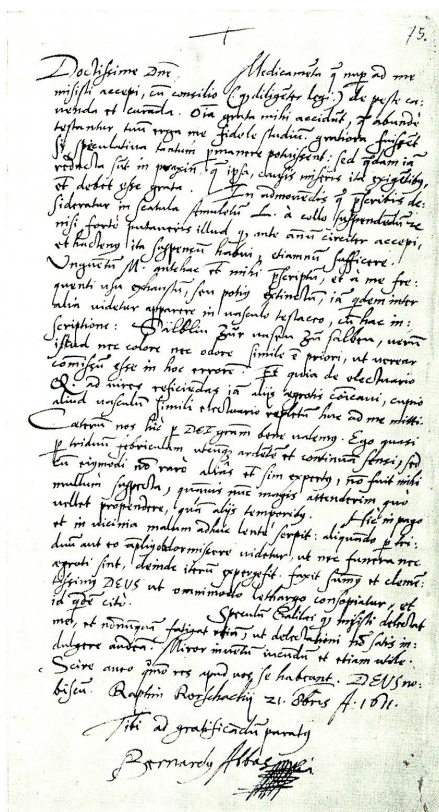 75.
Doctissime Dne. Medicameta q nup ad me
misisti accepi, cu consilio (qd diligeter legi) de peste ca-
venda et curada. Oia grata mihi accidut, et abunde
testantur, tuu erga me fidele studiu. gratiora fuissent
si speculativa tantum pmanere potuissent: sed quoda ia
redacta sut in praxin q ipsa, causis miseris ita exigetibq,
et debet esse grata. In admovedis q pscribis de-
sideratur in scatula Amuletu La. a collo suspendedu
nisi forte putaveris illud q ante annu circiter accepi,
et hactenq ita suspensu habui, etiamnu sufficere.
Ungvetu M. gutehac et mihi pscriptu, et a me fre-
quenti usu exhaustu, seu potiq extinctu, ia qdem inter
alia videtur apparere in vasculo testaceo, cu hac in-
scriptione: Sälblin zur nasen zu salben, verum
istud nec colore nec odore simile e priori, ut verear
comissu esse in hoc errore. Et quia de electuario
ad vires reficiendas ia alijs aegrotis comcavi, cupio
aliud vasculu simili electuario repletu hac ad me mitti.
Caeteru nos hic p DEI gram bene valemq. Ego quasi
p triduu febriculam utcunq ardete et continua sensi, sed
cu ejusmodi no raro alias et sim expertq, no fuit mihi
multum suspecta, quamvis nuc magis attenderim quo
vellet propendere, qua alijs temporibq. Hic in pago
et in vicinia malum adhuc lente serpit: aliquando p tri-
duu aut eo ampliq obdormiscere videtur, ut nec funera nec
aegroti sint, deinde iteru expergefit. faxit sumq et clemen-
tissimq DEUS ut omnimodo lethargo consopiatur, et
id qde cito. Speculu Galilaei q misisti delectat
me, et nonnuqua fatigat etia, ut delectationi no satis in-
dulgere audea. Miror inventu iucundu et etiam utile.
Scire aveo quo res apud vos se habeant. DEUS no-
biscu. Raptim Rorschachij 21. 8bris A. 1611.
Tibi ad gratificandu paratq
Bernardq Abbas